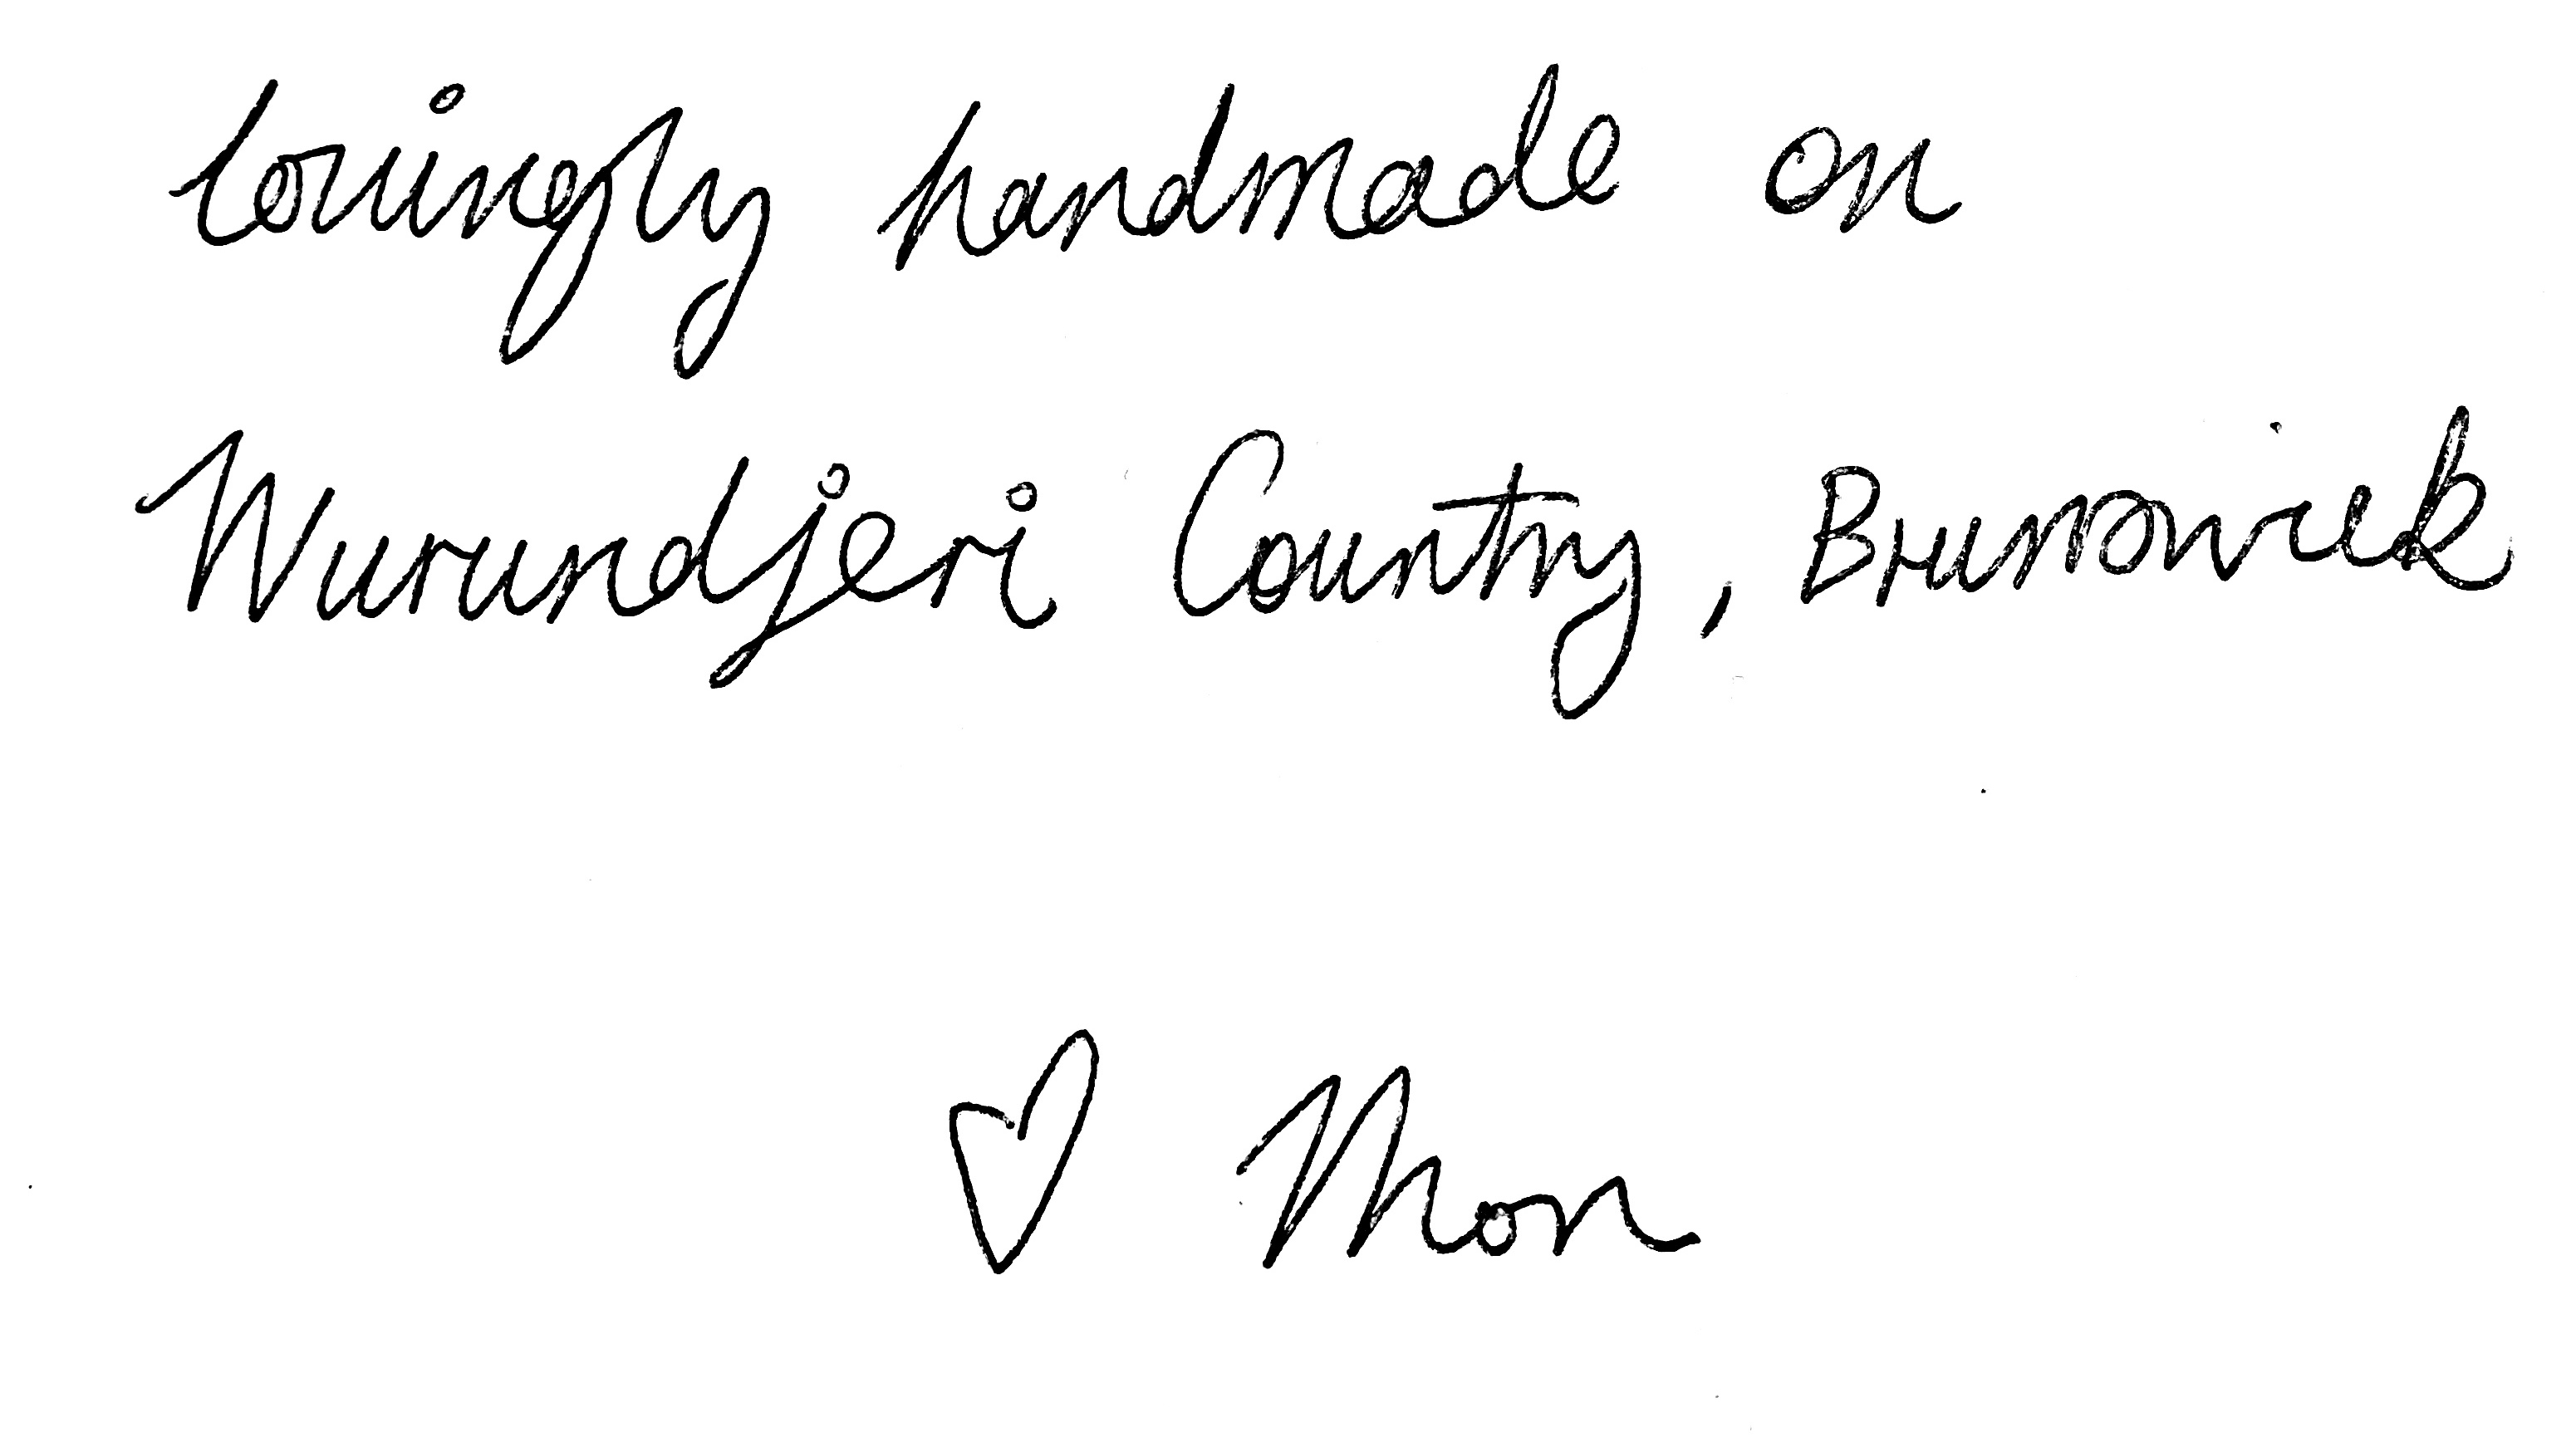 lovingly handmade on
Wurundjeri Country, Brunswick
♡ Mon